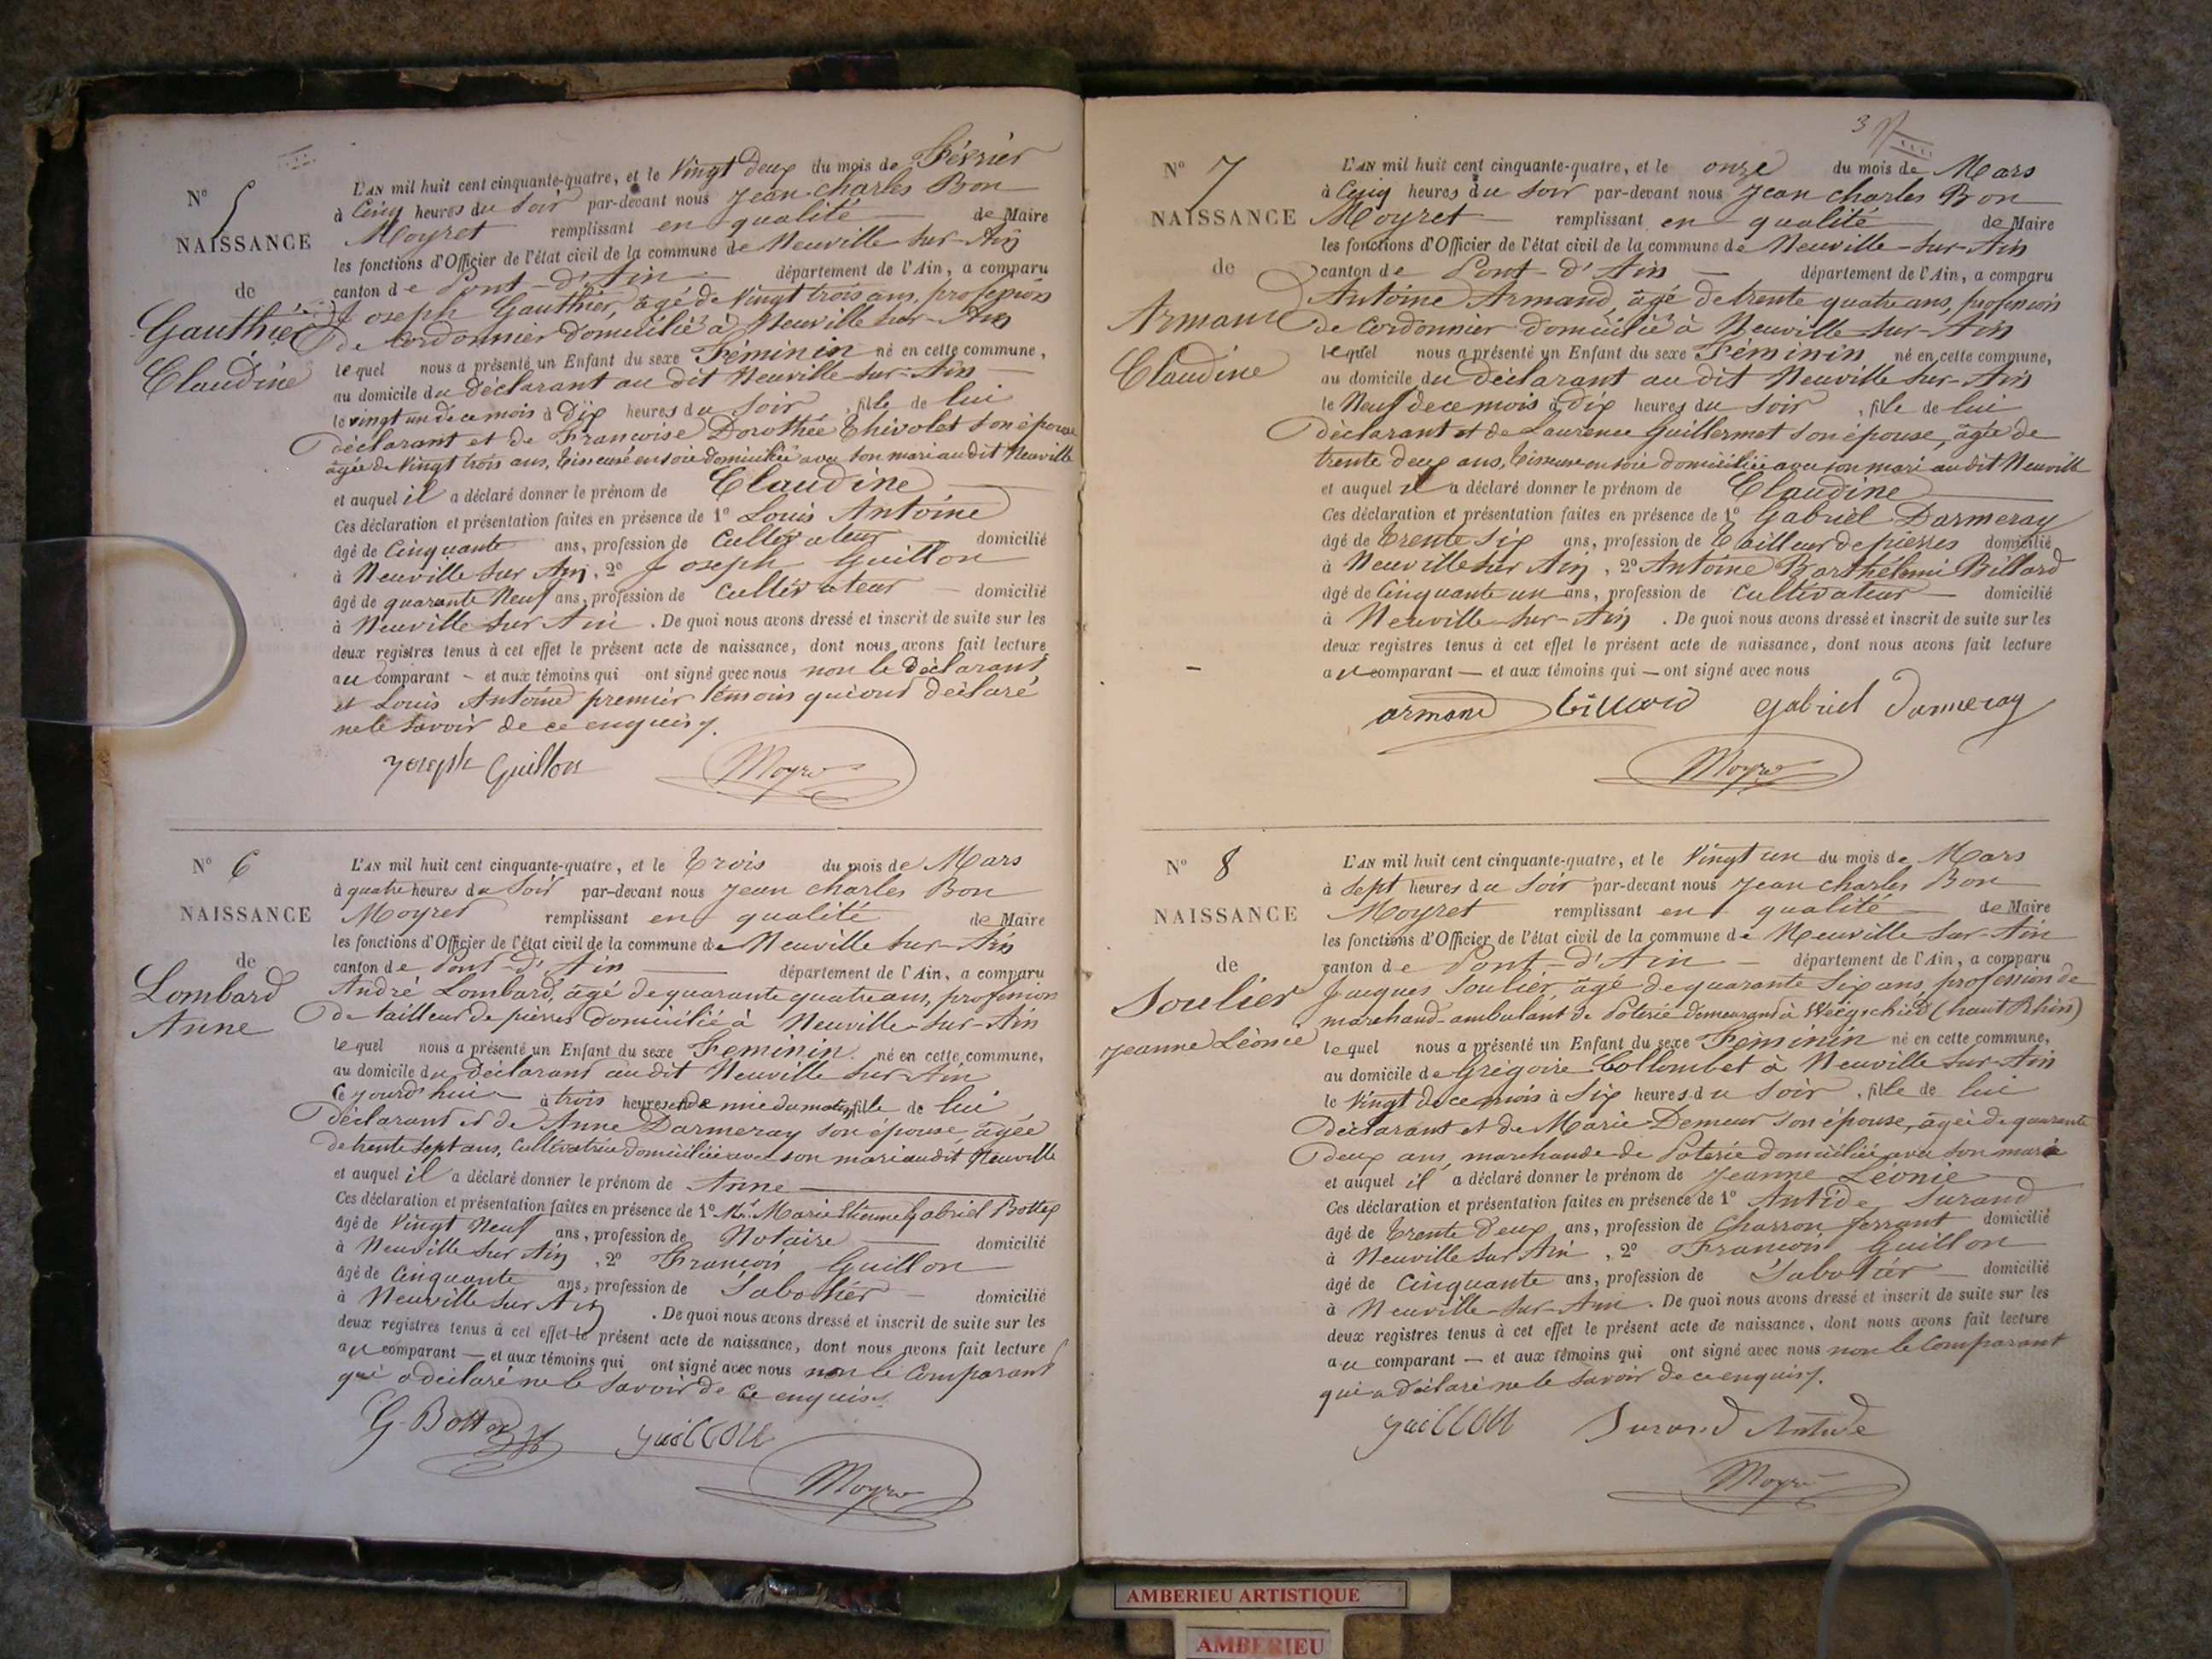 N° 5
NAISSANCE
de
Gauthier
Claudine
L'AN mil huit cent cinquante-quatre, et le Vingt deux du mois de Février
à Cinq heures du Soir par-devant nous Jean Charles Bon
Moyret remplissant en qualité de Maire
les fonctions d'Officier de l'état civil de la commune de Neuville sur-Ain
canton de Pont-d'Ain département de l'Ain, a comparu
Joseph Gauthier, âgé de Vingt trois ans, profession
de Cordonnier domicilié à Neuville sur-Ain
lequel nous a présenté un Enfant du sexe Féminin né en cette commune,
au domicile du Déclarant au dit Neuville-sur-Ain
le vingt un de ce mois à Dix heures du Soir, fille de lui
déclarant et de Françoise Dorothée Thévolet son épouse
âgée de Vingt trois ans, Tisseuse en soie domiciliée avec son mari au dit Neuville
et auquel il a déclaré donner le prénom de Claudine
Ces déclaration et présentation faites en présence de 1° Louis Antoine
âgé de Cinquante ans, profession de Cultivateur domicilié
à Neuville sur Ain, 2° Joseph Guillon
âgé de quarante Neuf ans, profession de Cultivateur domicilié
à Neuville sur Ain. De quoi nous avons dressé et inscrit de suite sur les
deux registres tenus à cet effet le présent acte de naissance, dont nous avons fait lecture
au comparant - et aux témoins qui ont signé avec nous non le Déclarant
et Louis Antoine premier témoin qui ont déclaré
ne le Savoir de ce enquis.
Joseph Guillon Moyret
N° 6
NAISSANCE
de
Lombard
Anne
L'AN mil huit cent cinquante-quatre, et le Trois du mois de Mars
à quatre heures du Soir par-devant nous Jean Charles Bon
Moyret remplissant en qualité de Maire
les fonctions d'Officier de l'état civil de la commune de Neuville sur-Ain
canton de Pont-d'Ain département de l'Ain, a comparu
André Lombard, âgé de quarante quatre ans, profession
de tailleur de pierres domicilié à Neuville-sur-Ain
lequel nous a présenté un Enfant du sexe Feminin né en cette commune,
au domicile du Déclarant au dit Neuville sur Ain
Ce jourd'hui à trois heures du matin, fille de lui
Déclarant et de Anne Darmeray son épouse âgée
de trente sept ans, Cultivatrice domiciliée avec son mari au dit Neuville
et auquel il a déclaré donner le prénom de Anne
Ces déclaration et présentation faites en présence de 1° Mr. Marie Etienne Gabriel Bottex
âgé de Vingt Neuf ans, profession de Notaire domicilié
à Neuville sur Ain, 2° François Guillon
âgé de Cinquante ans, profession de Sabotier domicilié
à Neuville sur Ain. De quoi nous avons dressé et inscrit de suite sur les
deux registres tenus à cet effet le présent acte de naissance, dont nous avons fait lecture
au comparant — et aux témoins qui ont signé avec nous non le Comparant
qui a déclaré ne le Savoir de ce enquis.
G. Bottex Guillon
Moyret
3
N° 7
NAISSANCE
de
Armand
Claudine
L'AN mil huit cent cinquante-quatre, et le onze du mois de Mars
à Cinq heures du Soir par-devant nous Jean Charles Bon
Moyret remplissant en qualité de Maire
les fonctions d'Officier de l'état civil de la commune de Neuville-sur-Ain
canton de Pont-d'Ain département de l'Ain, a comparu
Antoine Armand, âgé de trente quatre ans, profession
de Cordonnier domicilié à Neuville-sur-Ain
lequel nous a présenté un Enfant du sexe Féminin né en cette commune,
au domicile du Déclarant au dit Neuville sur-Ain
le Neuf de ce mois à dix heures du Soir, fille de lui
déclarant et de Laurence Guillermet son épouse, âgée de
trente deux ans, Tisseuse en soie domiciliée avec son mari au dit Neuville
et auquel il a déclaré donner le prénom de Claudine
Ces déclaration et présentation faites en présence de 1° Gabriel Darmeray
âgé de Trente Six ans, profession de Tailleur de pierres domicilié
à Neuville sur Ain, 2° Antoine Barthelemi Billard
âgé de Cinquante un ans, profession de Cultivateur domicilié
à Neuville-sur-Ain. De quoi nous avons dressé et inscrit de suite sur les
deux registres tenus à cet effet le présent acte de naissance, dont nous avons fait lecture
au comparant — et aux témoins qui — ont signé avec nous
armand billard gabriel darmeray
Moyret
N° 8
NAISSANCE
de
Soulier
Jeanne Léonie
L'AN mil huit cent cinquante-quatre, et le Vingt un du mois de Mars
à Sept heures du Soir par-devant nous Jean Charles Bon
Moyret remplissant en qualité de Maire
les fonctions d'Officier de l'état civil de la commune de Neuville sur-Ain
canton de Pont-d'Ain département de l'Ain, a comparu
Jacques Soulier, âgé de quarante Six ans, profession de
marchand-ambulant de Poterie demeurant à (haut Rhin)
lequel nous a présenté un Enfant du sexe Féminin né en cette commune,
au domicile de Grégoire Collombet à Neuville sur-Ain
le Vingt de ce mois à Six heures du Soir, fille de lui
Déclarant et de Marie Demeur son épouse, âgée de quarante
deux ans, marchande de Poterie domiciliée avec son mari
et auquel il a déclaré donner le prénom de Jeanne Léonie
Ces déclaration et présentation faites en présence de 1° Antide Durand
âgé de Trente Deux ans, profession de Charron ferrant domicilié
à Neuville sur Ain, 2° François Guillon
âgé de Cinquante ans, profession de Sabotier domicilié
à Neuville-sur-Ain. De quoi nous avons dressé et inscrit de suite sur les
deux registres tenus à cet effet le présent acte de naissance, dont nous avons fait lecture
au comparant — et aux témoins qui ont signé avec nous non le Comparant
qui a déclaré ne le Savoir de ce enquis.
Guillon Durand Antide
Moyret
AMBERIEU ARTISTIQUE
AMBERIEU